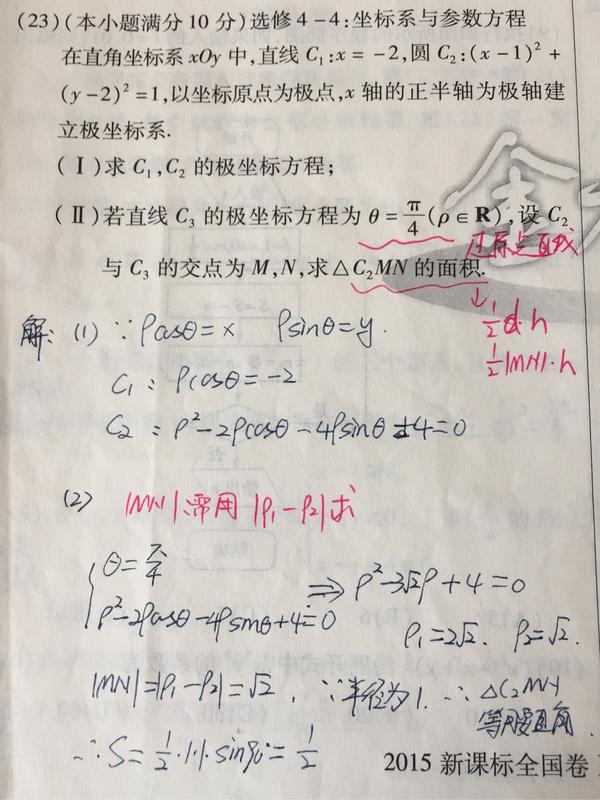 (23)(本小题满分 10 分)选修 4-4:坐标系与参数方程
在直角坐标系 xOy 中,直线 C₁:x = -2,圆 C₂:(x-1)² +
(y-2)² =1,以坐标原点为极点,x 轴的正半轴为极轴建
立极坐标系.
(Ⅰ)求 C₁,C₂ 的极坐标方程;
(Ⅱ)若直线 C₃ 的极坐标方程为 θ = π/4 (ρ∈R),设 C₂
过原点直线
与 C₃ 的交点为 M,N,求△C₂MN 的面积.
↓
½d·h
½|MN|·h
解: (1) ∵ρcosθ=x ρsinθ=y.
C₁: ρcosθ=-2
C₂: ρ²-2ρcosθ-4ρsinθ+4=0
(2) |MN|:常用 |ρ₁-ρ₂|求
θ=π/4
ρ²-2ρcosθ-4ρsinθ+4=0 ⇒ ρ²-3√2ρ+4=0
ρ₁=2√2. ρ₂=√2.
|MN|=|ρ₁-ρ₂|=√2. ∵半径为1. ∴ △C₂MN
等腰直角.
∴S=½·1·1·sin90°=½
2015 新课标全国卷